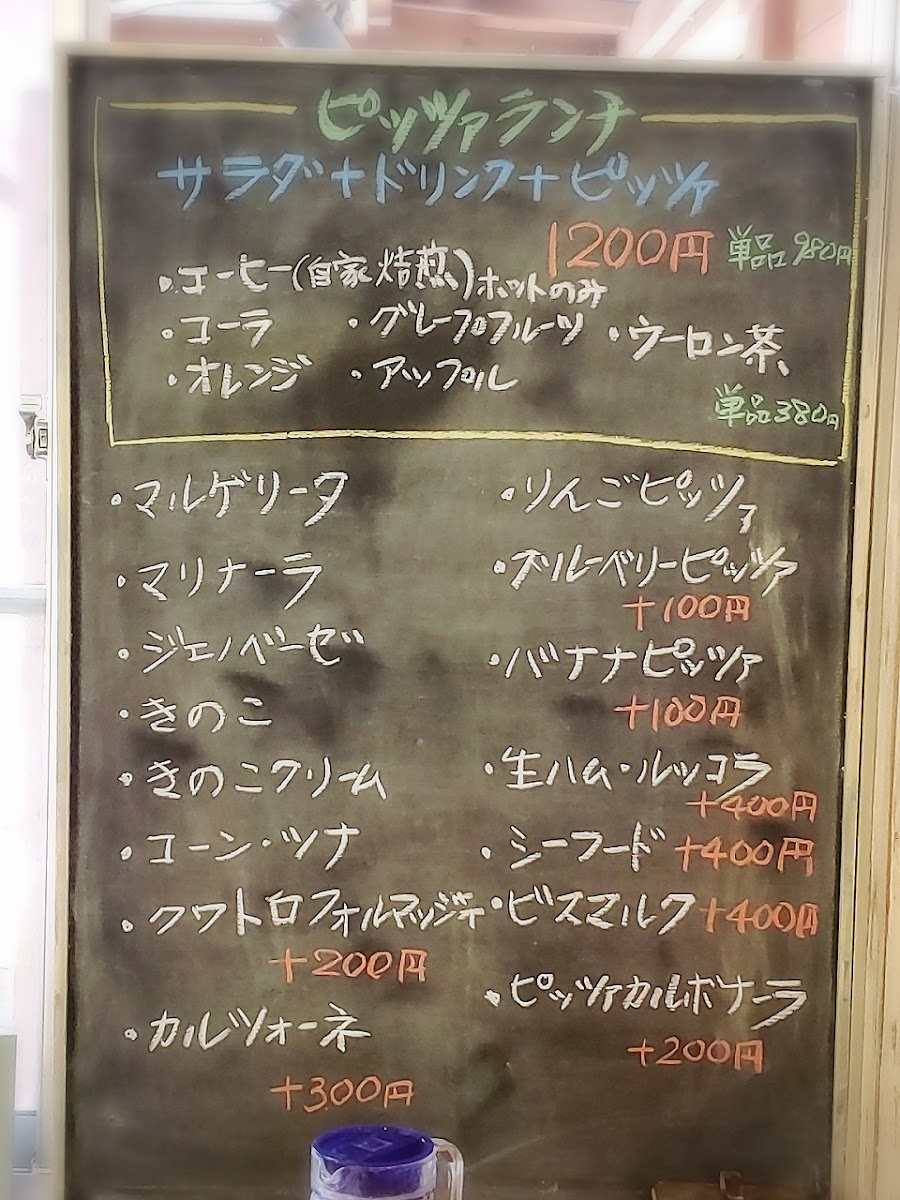 ピッツァランチ
サラダ+ドリンク+ピッツァ
1200円 単品980円
・コーヒー(自家焙煎)ホットのみ
・コーラ ・グレープフルーツ ・ウーロン茶
・オレンジ ・アップル
単品380円
・マルゲリータ
・マリナーラ
・ジェノベーゼ
・きのこ
・きのこクリーム
・コーン・ツナ
・クワトロフォルマッジテ
+200円
・カルツォーネ
+300円
・りんごピッツァ
・ブルーベリーピッツァ
+100円
・バナナピッツァ
+100円
・生ハム・ルッコラ
+400円
・シーフード +400円
・ビスマルク +400円
・ピッツァカルボナーラ
+200円